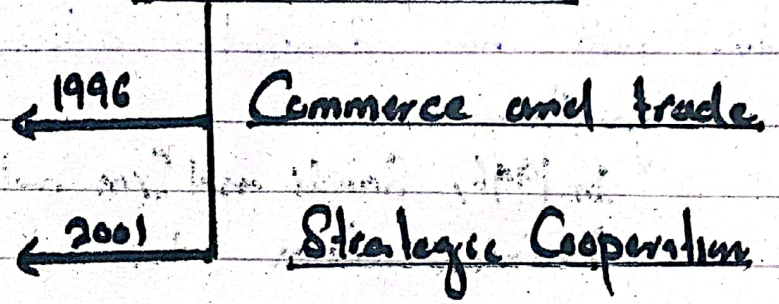 1996 Commerce and trade
2001 Strategic Cooperation